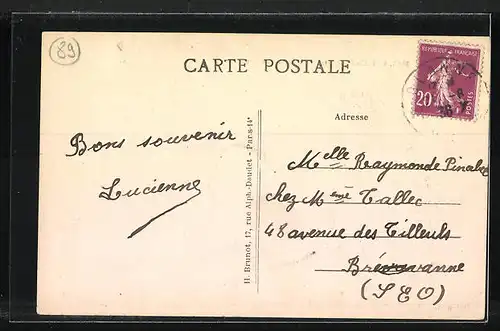 89
CARTE POSTALE
REPUBLIQUE FRANÇAISE
20
POSTES
Adresse
Bons souvenir
Lucienne
H. Brunot, 17, rue Alph.-Daudet - Paris-14e
Melle Raymonde
chez Mme Tallec
48 avenue des Tilleuls
(S E O)